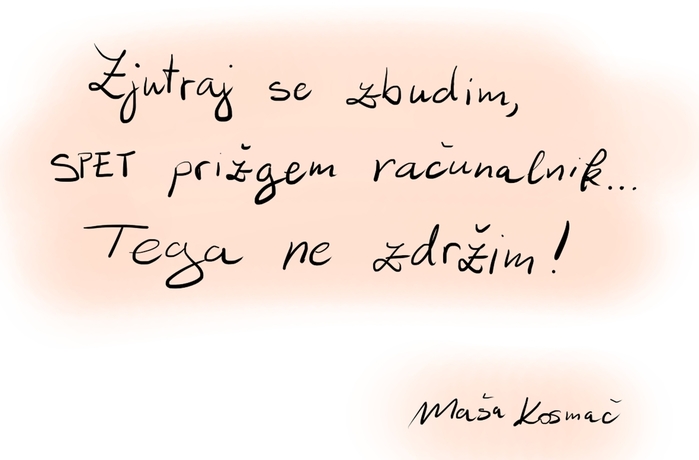 Zjutraj se zbudim,
SPET prižgem računalnik...
Tega ne zdržim!
Maša Kosmač